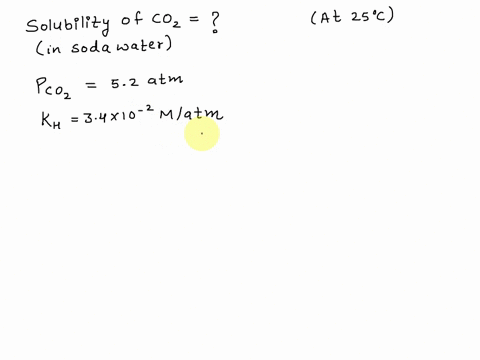 Solubility of CO₂ = ? (At 25°C)
(in soda water)
P_CO₂ = 5.2 atm
K_H = 3.4×10⁻² M/atm